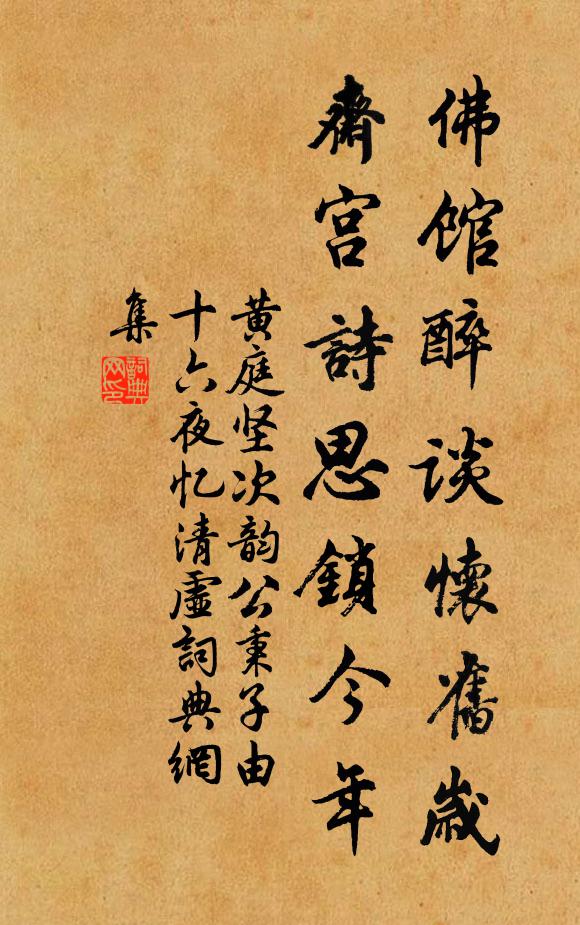 佛馆醉谈懷舊歲
齋宫詩思鎖今年
黄庭坚次韵公秉子由
十六夜忆清虚詞典網
集
詞典
网印